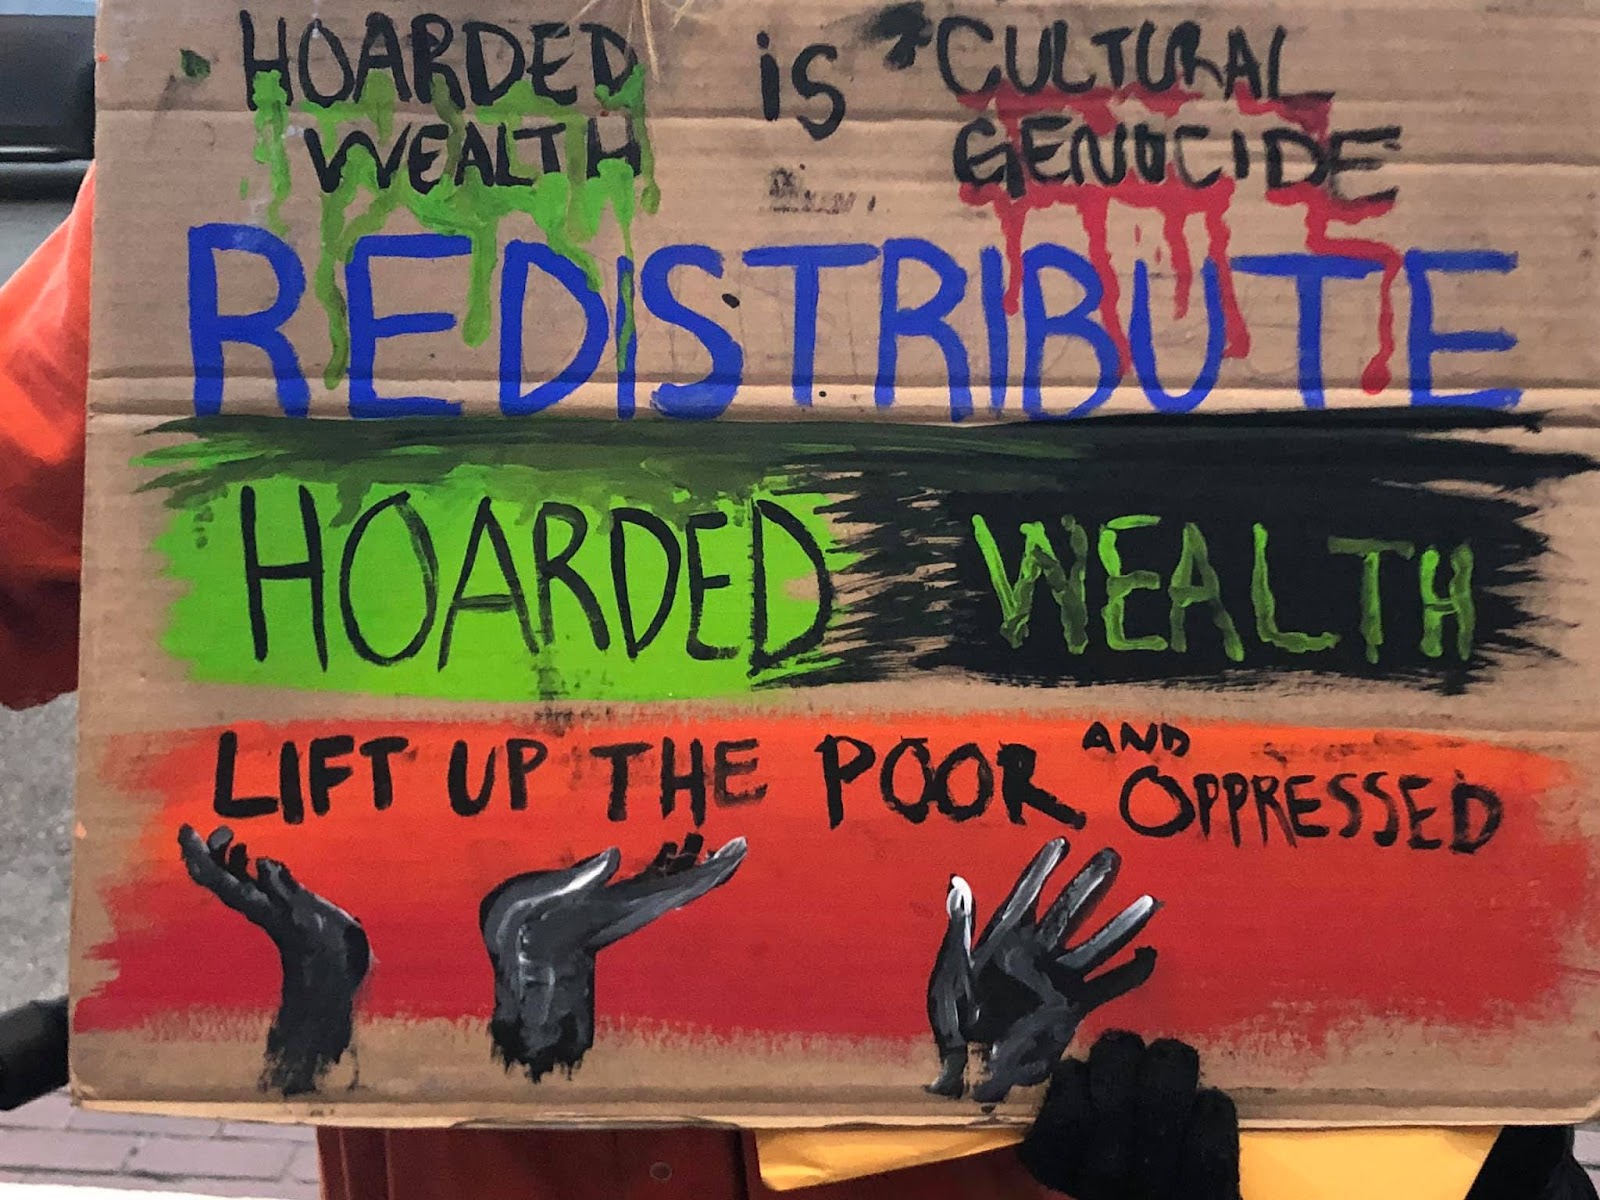 HOARDED
WEALTH
is
CULTURAL
GENOCIDE
REDISTRIBUTE
HOARDED WEALTH
LIFT UP THE POOR AND OPPRESSED